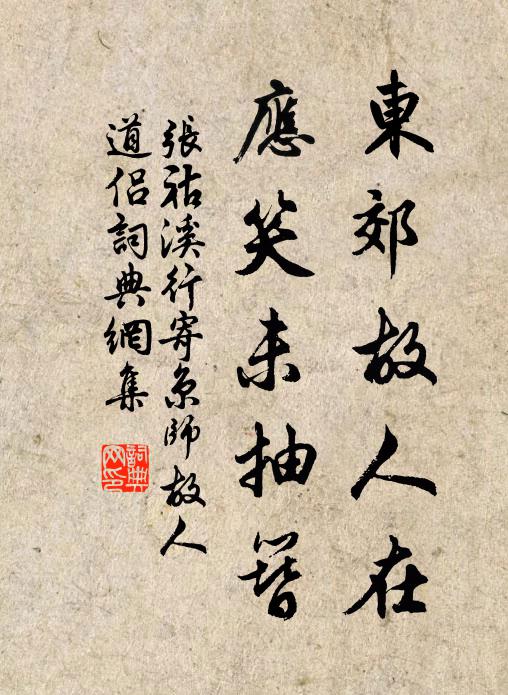 東郊故人在
應笑未抽簪
張祜溪行寄京師故人
道侶詞典網集
詞典网印